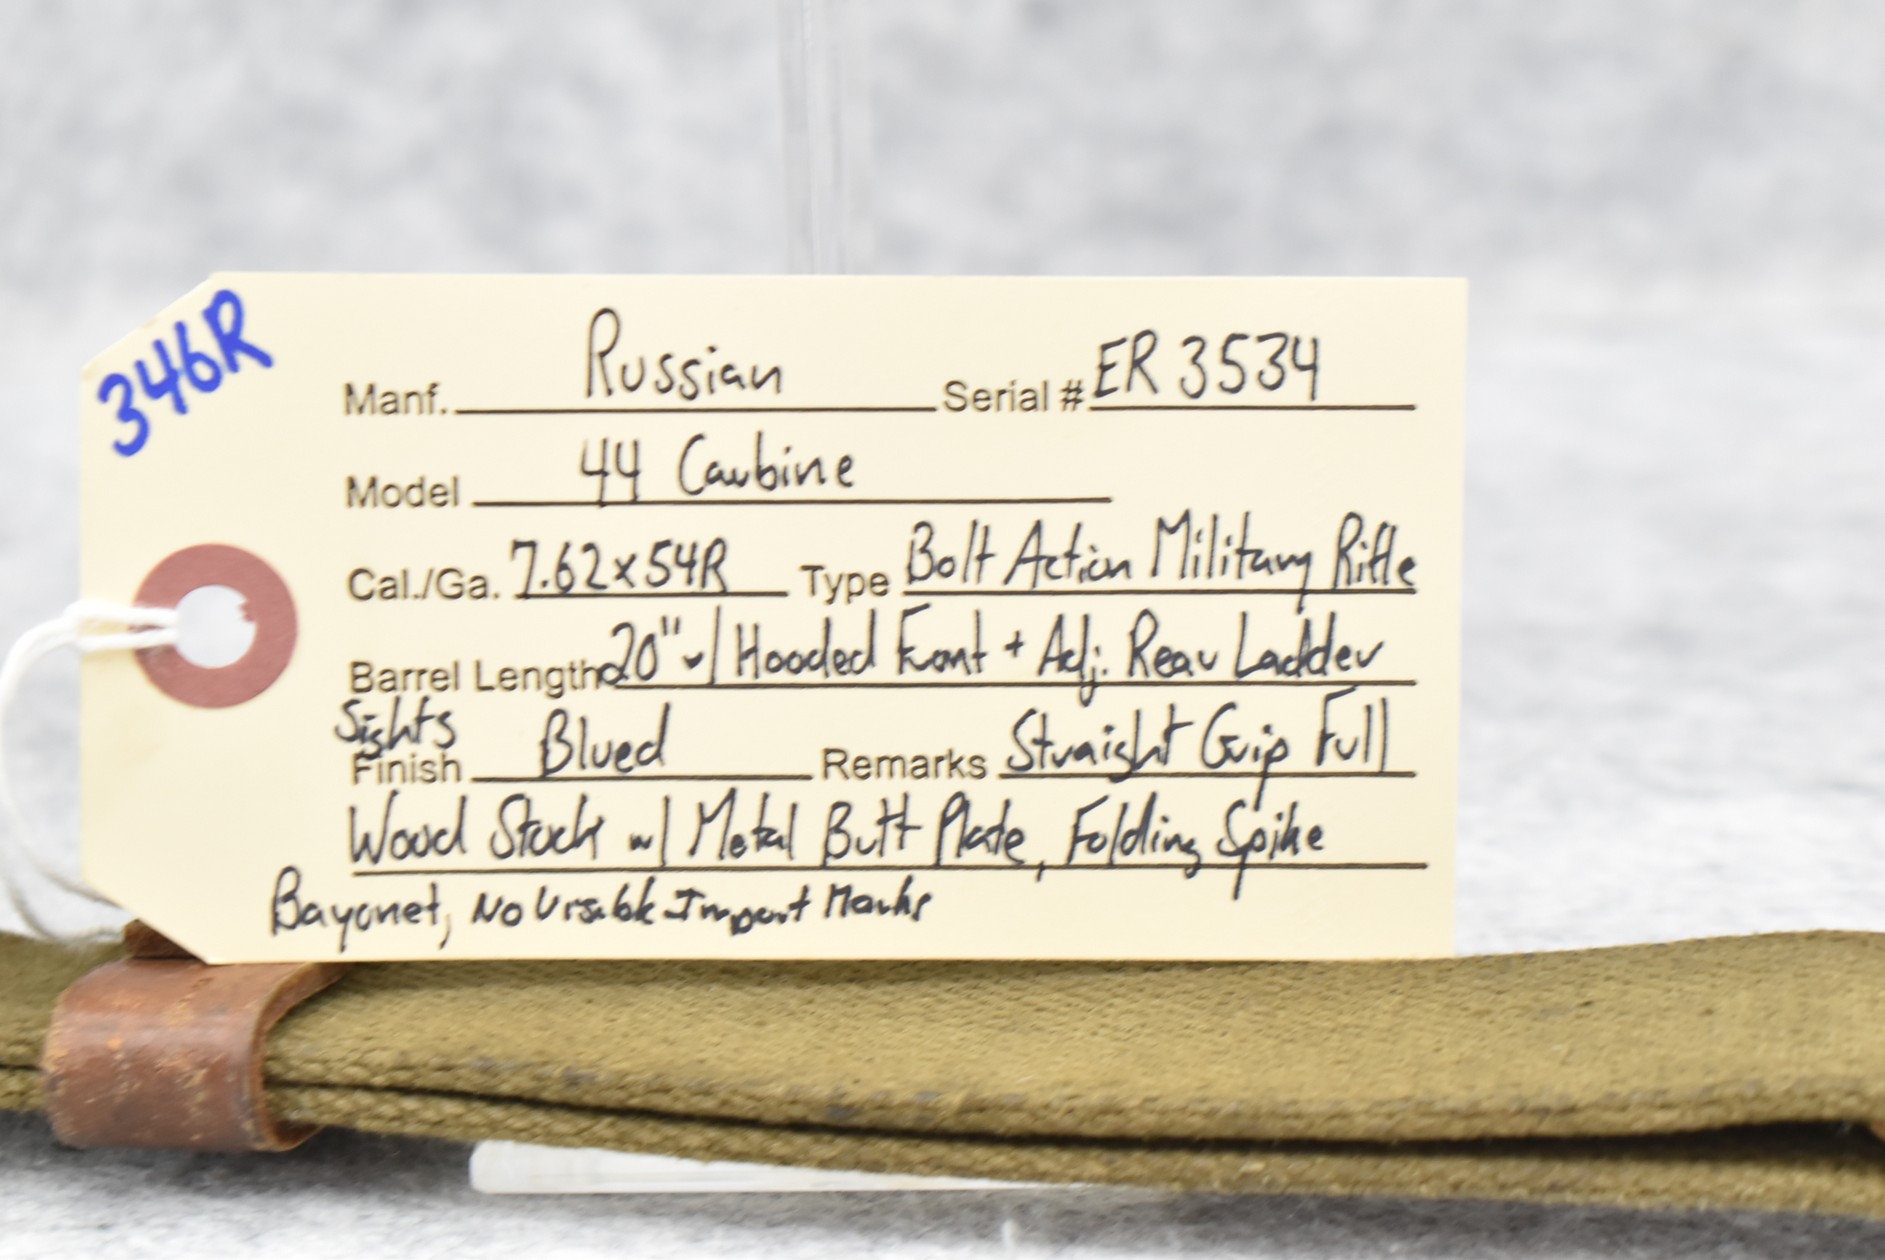 346R
Manf. Russian Serial # ER 3534
Model 44 Carbine
Cal./Ga. 7.62x54R Type Bolt Action Military Rifle
Barrel Length 20" w/ Hooded Front + Adj. Rear Ladder
Sights
Finish Blued Remarks Straight Grip Full
Wood Stock w/ Metal Butt Plate, Folding Spike
Bayonet, No Visible Import Marks